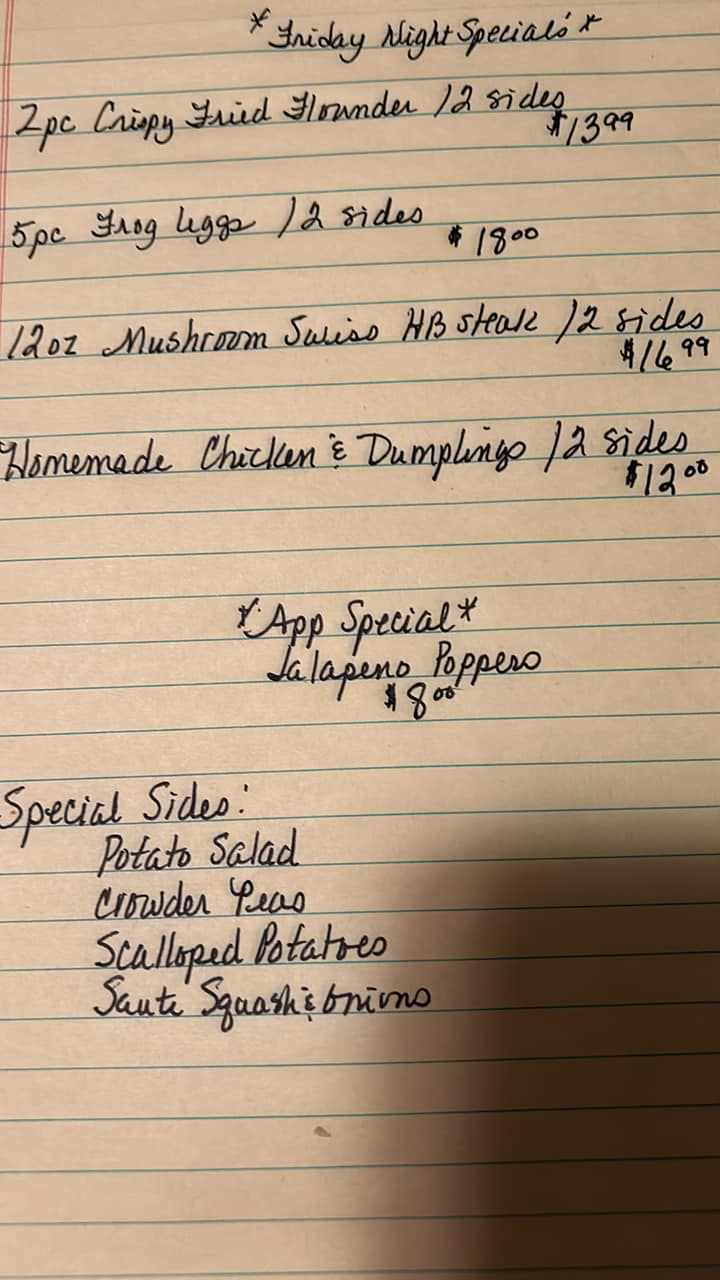 *Friday Night Special's*
2pc Crispy Fried Flounder /2 sides
$13.99
5pc Frog leggs /2 sides
$18.00
12oz Mushroom Swiss HB steak /2 sides
$16.99
Homemade Chicken & Dumplings /2 sides
$12.00
*App Special*
Jalapeno Poppers
$8.00
Special Sides:
Potato Salad
Crowder Peas
Scalloped Potatoes
Saute Squash & Onions